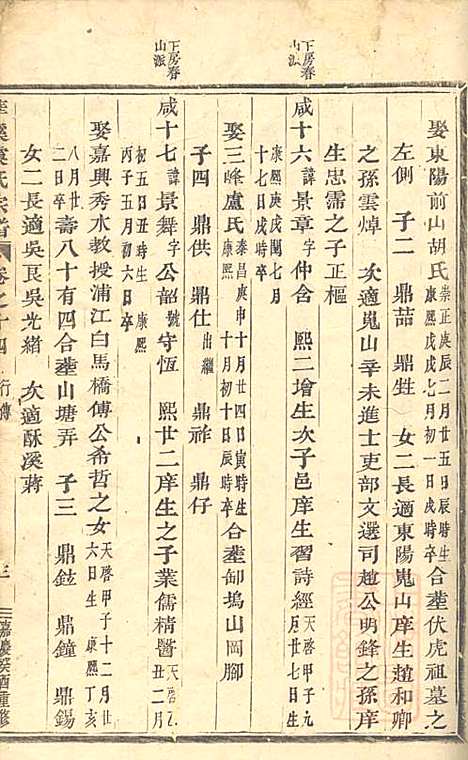 下房春山派
下房春山派
娶東陽前山胡氏 崇正庚辰二月廿五日辰時生 康熙戊戌七月初一日戌時卒 合塟伏虎祖墓之
左側 子二 鼎喆 鼎甡 女二長適東陽嵬山庠生趙和卿
之孫雲焯 次適嵬山辛未進士吏部文選司趙公明鋒之孫庠
生忠需之子正樞
咸十六 諱景章字仲含 熙二增生次子邑庠生習詩經 天啓甲子九月廿七日生
康熙庚戌閏七月
十七日戌時卒
娶三峰盧氏 泰昌庚申十月廿四日寅時生 康熙 十月初十日辰時卒 合塟卸塢山岡腳
子四 鼎供 鼎仕 出繼 鼎祚 鼎仔
咸十七 諱景舞字公韶號守恆 熙廿二庠生之子業儒精醫 天啓乙丑二月
初五日丑時生 康熙
丙子五月初六日卒
娶嘉興秀水教授浦江白馬橋傅公希哲之女 天啓甲子十二月廿六日生 康熙丁亥
八月廿二日卒 壽八十有四合塟山塘弄 子三 鼎鉉 鼎鐘 鼎錫
女二長適吳艮吳光緒 次適酥溪蔣
氏宗譜 卷之十四 行傳 三 嘉慶癸酉重修